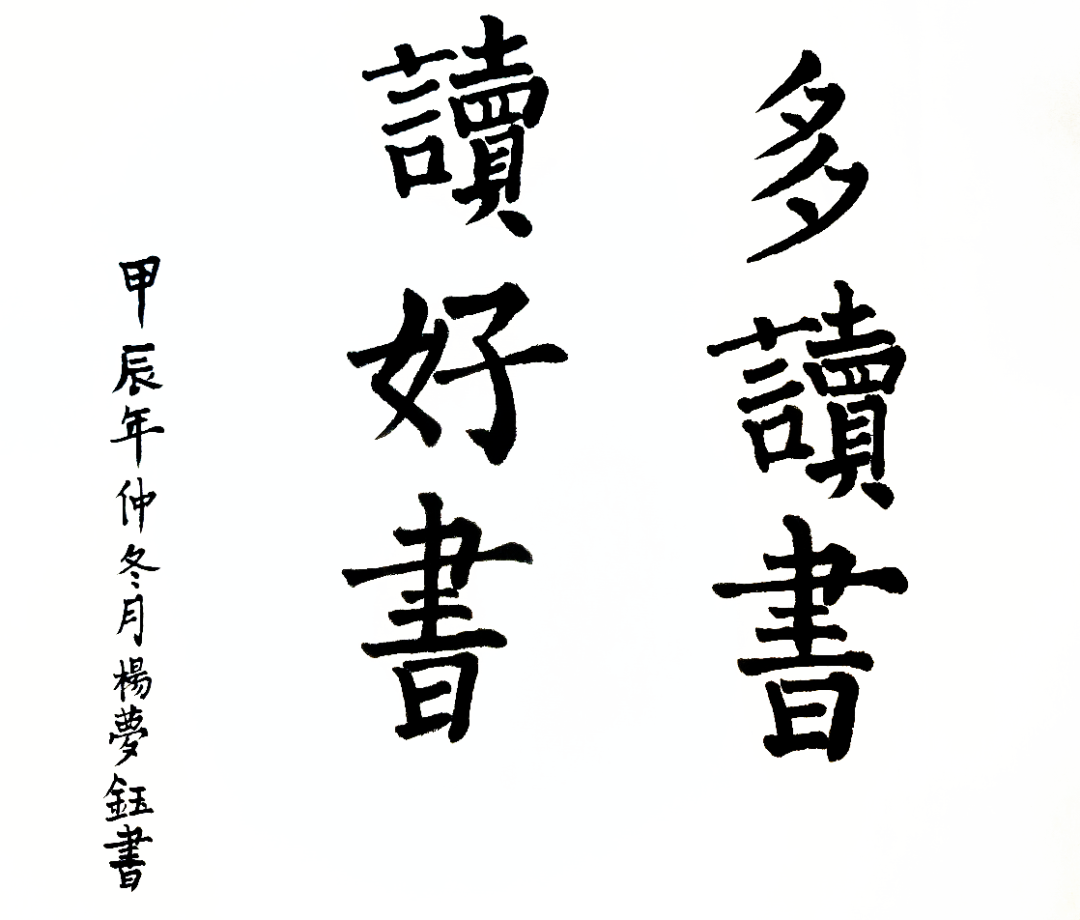 多讀書
讀好書
甲辰年仲冬月楊夢鈺書